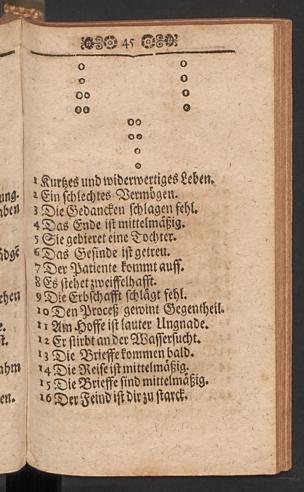 45
1 Kurtzes und widerwertiges Leben.
2 Ein schlechtes Vermögen.
3 Die Gedancken schlagen fehl.
4 Das Ende ist mittelmäßig.
5 Sie gebieret eine Tochter.
6 Das Gesinde ist getreu.
7 Der Patiente kommt auff.
8 Es stehet zweiffelhafft.
9 Die Erbschafft schlägt fehl.
10 Den Proceß gewint Gegentheil.
11 Am Hoffe ist lauter Ungnade.
12 Er stirbt an der Wassersucht.
13 Die Brieffe kommen bald.
14 Die Reise ist mittelmäßig.
15 Die Brieffe sind mittelmäßig.
16 Der Feind ist dir zu starck.